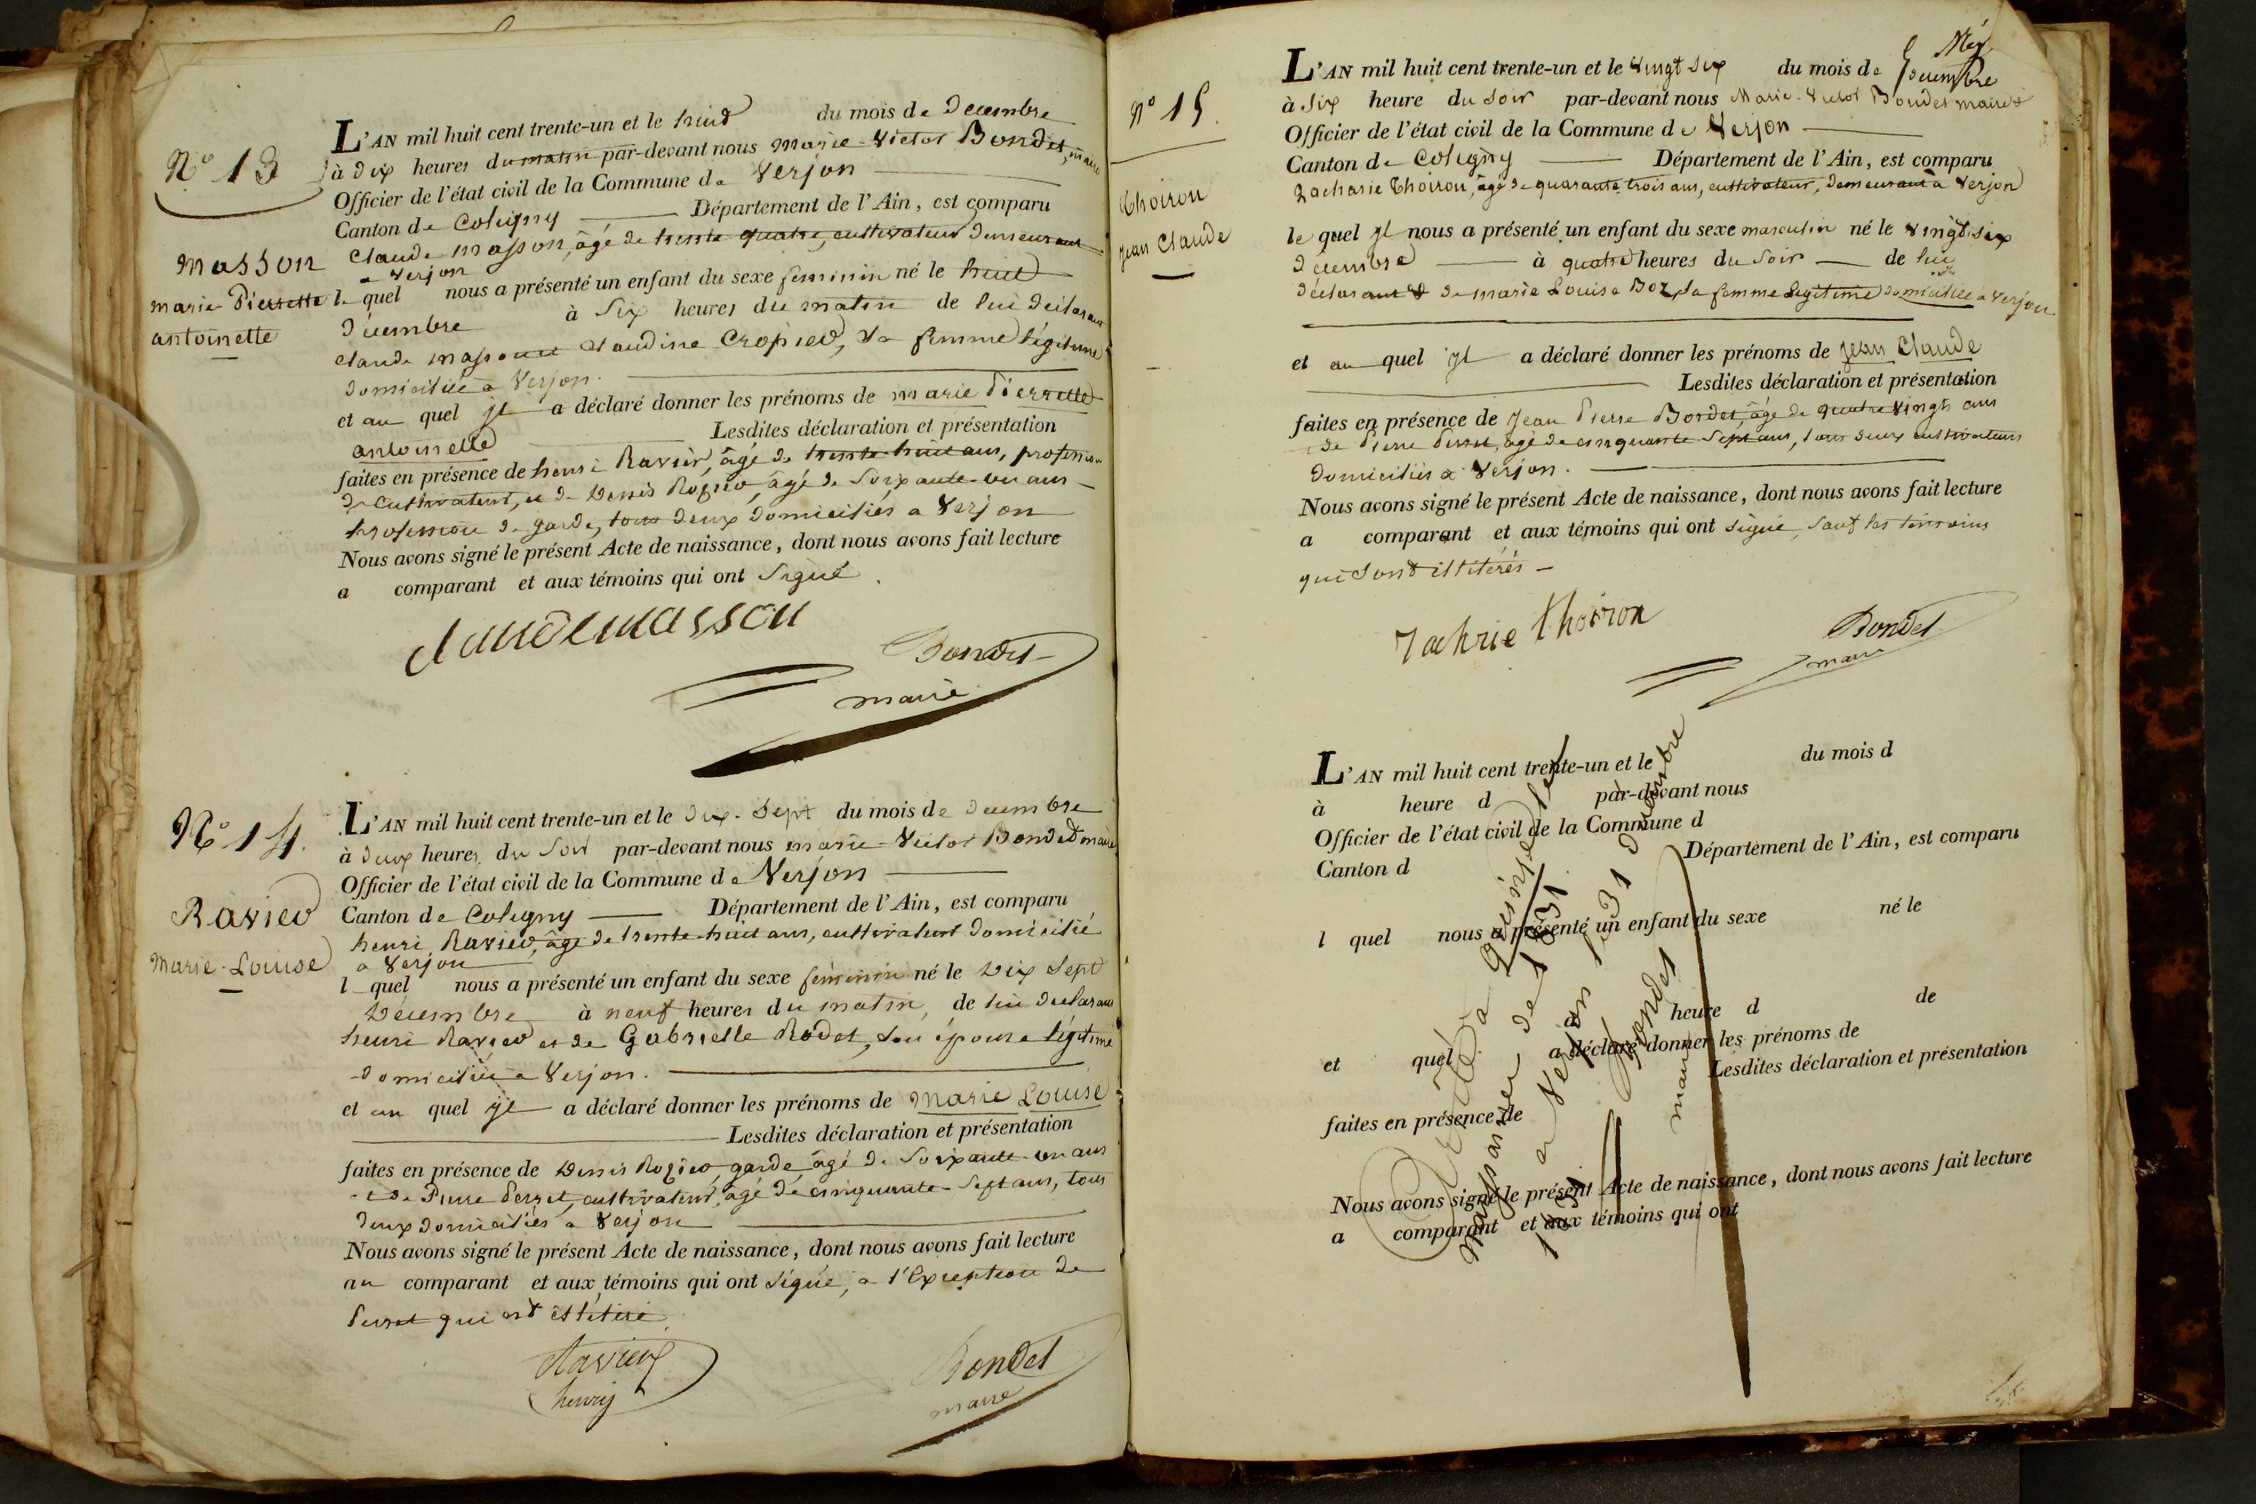 N° 13
Masson
marie Pierrette
antoinette
L'AN mil huit cent trente-un et le huit du mois de Decembre
à Dix heures du matin par-devant nous Marie-Victor Bondet, maire
Officier de l'état civil de la Commune de Verjon
Canton de Coligny Département de l'Ain, est comparu
Claude Masson, âgé de trente quatre, cultivateur demeurant
a Verjon
le quel nous a présenté un enfant du sexe feminin né le huit
Décembre à Six heures du matin de lui déclarant
Claude Masson et Claudine Cropier, Sa femme légitime
domiciliée a Verjon.
et au quel il a déclaré donner les prénoms de marie Pierrette
antoinette Lesdites déclaration et présentation
faites en présence de henri Ravier, âgé de trente huit ans, profession
de Cultivateur, et de Denis Rozier, âgé de Soixante-un ans
profession de garde, tous deux domiciliés a Verjon
Nous avons signé le présent Acte de naissance, dont nous avons fait lecture
a comparant et aux témoins qui ont Signé.
claudemasson
Bondet
maire
N° 14.
Ravier
Marie-Louise
L'AN mil huit cent trente-un et le dix-Sept du mois de Decembre
à deux heures du Soir par-devant nous marie-Victor Bondet maire
Officier de l'état civil de la Commune de Verjon
Canton de Coligny Département de l'Ain, est comparu
henri Ravier, âgé de trente-huit ans, cultivateur domicilié
a Verjon
l quel nous a présenté un enfant du sexe féminin né le Dix Sept
Décembre à neuf heures du matin, de lui declarant
henri Ravier et de Gabrielle Rodet, Son épouse légitime
domiciliée a Verjon.
et au quel il a déclaré donner les prénoms de Marie Louise
Lesdites déclaration et présentation
faites en présence de Denis Rozier, garde, âgé de Soixante-un ans
et de Pierre Perret, cultivateur, âgé de cinquante-Sept ans, tous
deux domiciliés a Verjon
Nous avons signé le présent Acte de naissance, dont nous avons fait lecture
au comparant et aux témoins qui ont Signé, a l'Exception de
Perret qui est illétiré.
Ravier
henrij
Bondet
maire
N° 15.
Thoiron
Jean Claude
L'AN mil huit cent trente-un et le Vingt Six du mois de Décembre
à Six heure du Soir par-devant nous Marie-Victor Bondet maire
Officier de l'état civil de la Commune de Verjon
Canton de Coligny Département de l'Ain, est comparu
Zacharie Thoiron, âgé de quarante trois ans, cultivateur, demeurant à Verjon
le quel il nous a présenté un enfant du sexe masculin né le Vingt Six
Décembre à quatre heures du Soir de lui
déclarant et de Marie Louise Boz, Sa femme Légitime domiciliée a Verjon.
et au quel il a déclaré donner les prénoms de Jean Claude
Lesdites déclaration et présentation
faites en présence de Jean Pierre Bordet, âgé de quatre Vingts ans
et de Pierre Perret, âgé de cinquante Sept ans, tous deux cultivateurs
domiciliés a Verjon.
Nous avons signé le présent Acte de naissance, dont nous avons fait lecture
a comparant et aux témoins qui ont Signé, Sauf les témoins
qui Sont illitérés
Zachrie thoiron
Bondet
maire
L'AN mil huit cent trente-un et le du mois d
à heure d par-devant nous
Officier de l'état civil de la Commune d
Canton d Département de l'Ain, est comparu
l quel nous a présenté un enfant du sexe né le
à heure d de
et quel a déclaré donner les prénoms de
Lesdites déclaration et présentation
faites en présence de
Nous avons signé le présent Acte de naissance, dont nous avons fait lecture
a comparant et aux témoins qui ont
Arrêté a quinze les
naissances de 1831.
a Verjon le 31 décembre
1831
Bondet
maire